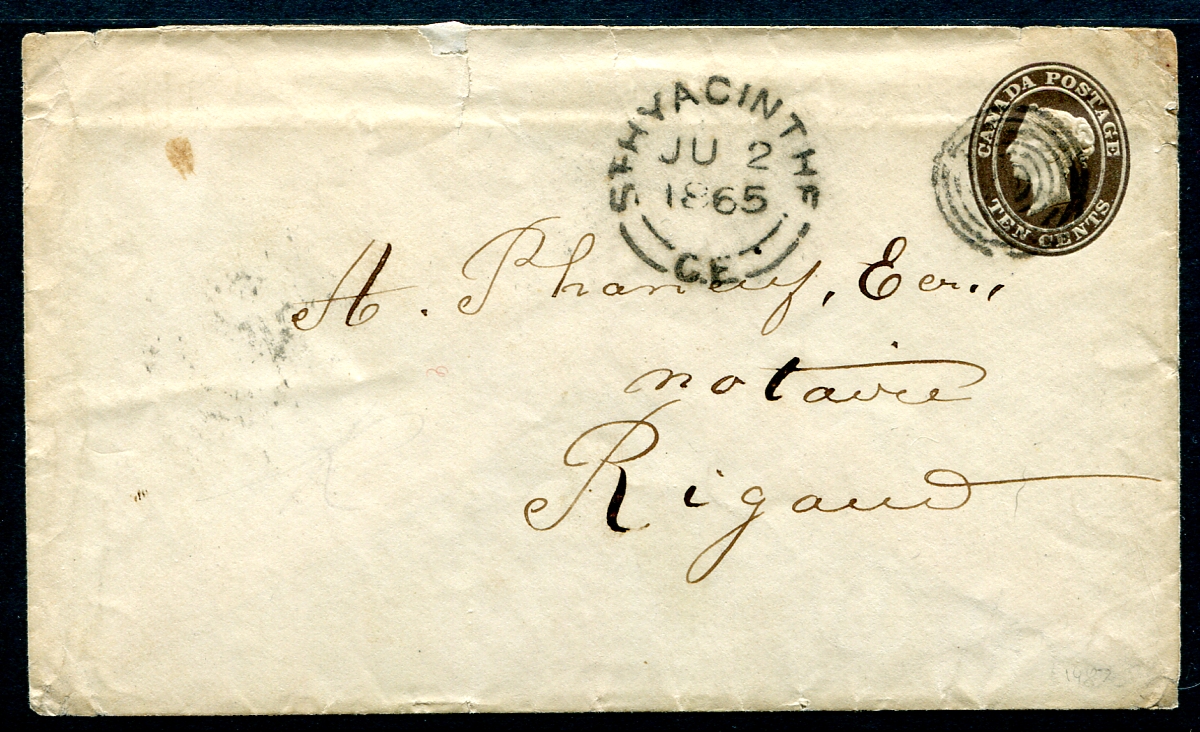 ST HYACINTHE
JU 2
1865
C.E.
CANADA POSTAGE
TEN CENTS
A. Phaneuf, Ecr.,
notaire
Rigaud